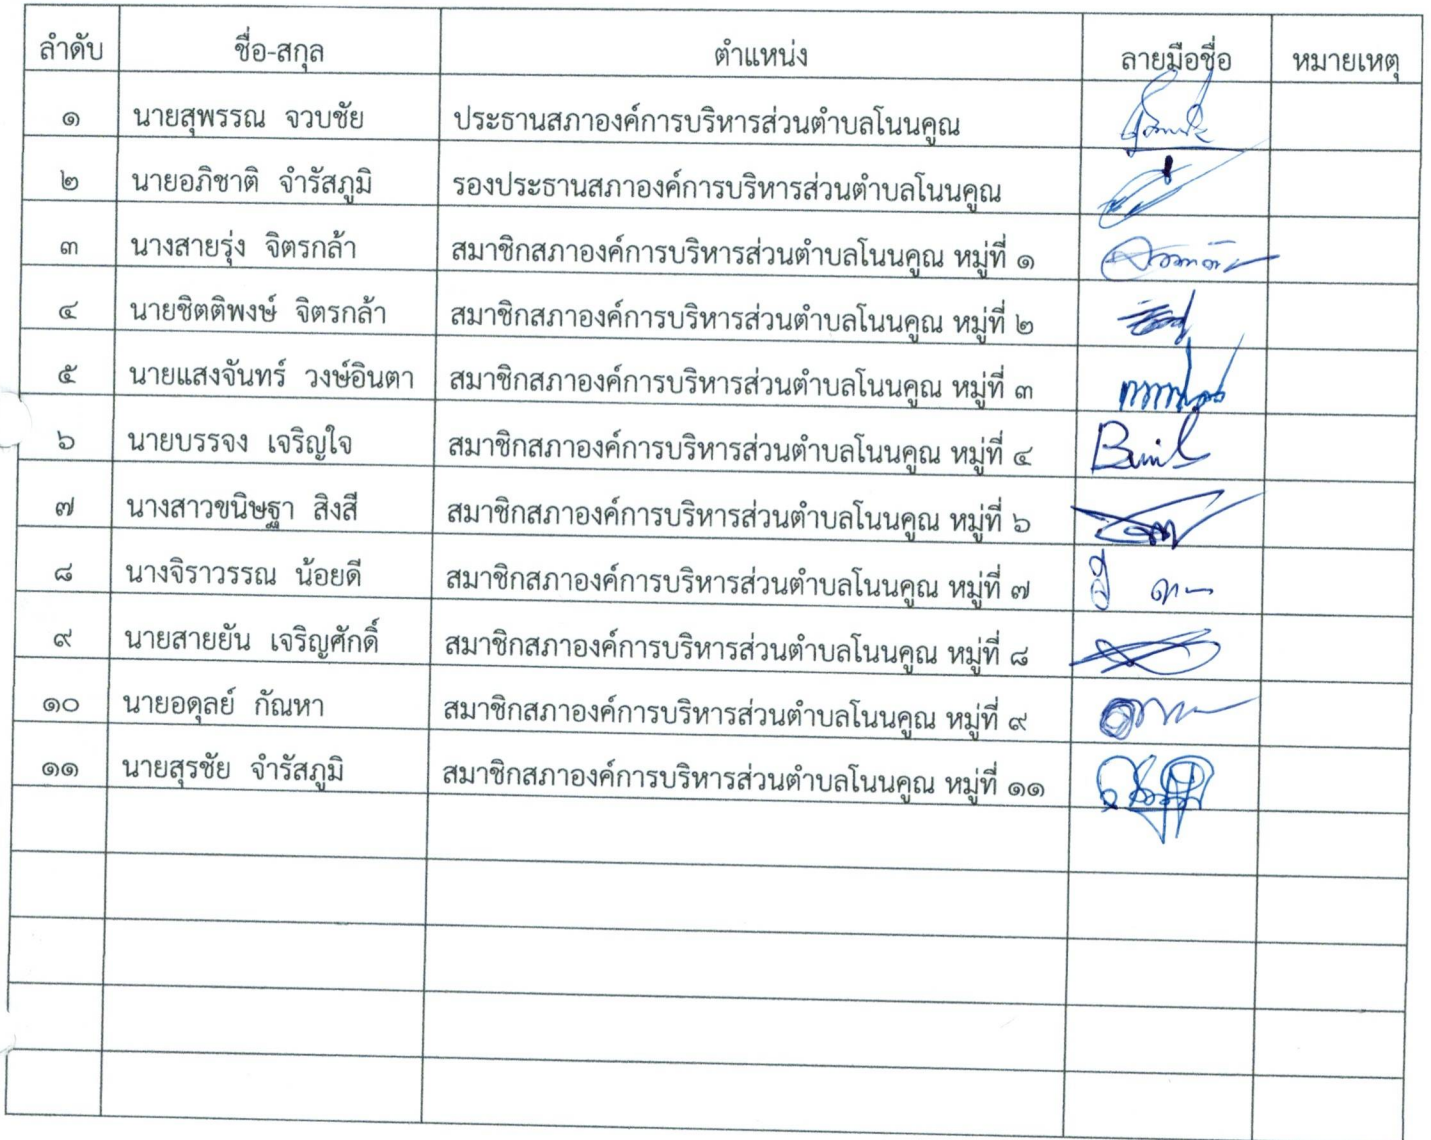 ลำดับ ชื่อ-สกุล ตำแหน่ง ลายมือชื่อ หมายเหตุ
๑ นายสุพรรณ จวบชัย ประธานสภาองค์การบริหารส่วนตำบลโนนคูณ
๒ นายอภิชาติ จำรัสภูมิ รองประธานสภาองค์การบริหารส่วนตำบลโนนคูณ
๓ นางสายรุ่ง จิตรกล้า สมาชิกสภาองค์การบริหารส่วนตำบลโนนคูณ หมู่ที่ ๑
๔ นายชิตติพงษ์ จิตรกล้า สมาชิกสภาองค์การบริหารส่วนตำบลโนนคูณ หมู่ที่ ๒
๕ นายแสงจันทร์ วงษ์อินตา สมาชิกสภาองค์การบริหารส่วนตำบลโนนคูณ หมู่ที่ ๓
๖ นายบรรจง เจริญใจ สมาชิกสภาองค์การบริหารส่วนตำบลโนนคูณ หมู่ที่ ๔
๗ นางสาวขนิษฐา สิงสี สมาชิกสภาองค์การบริหารส่วนตำบลโนนคูณ หมู่ที่ ๖
๘ นางจิราวรรณ น้อยดี สมาชิกสภาองค์การบริหารส่วนตำบลโนนคูณ หมู่ที่ ๗
๙ นายสายยัน เจริญศักดิ์ สมาชิกสภาองค์การบริหารส่วนตำบลโนนคูณ หมู่ที่ ๘
๑๐ นายอดุลย์ กัณหา สมาชิกสภาองค์การบริหารส่วนตำบลโนนคูณ หมู่ที่ ๙
๑๑ นายสุรชัย จำรัสภูมิ สมาชิกสภาองค์การบริหารส่วนตำบลโนนคูณ หมู่ที่ ๑๑